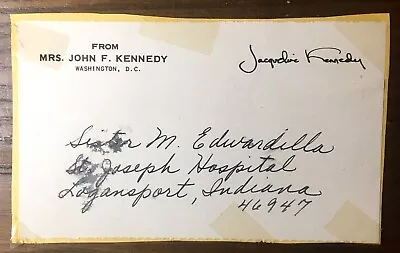 FROM
MRS. JOHN F. KENNEDY
WASHINGTON, D.C.
Jacqueline Kennedy
Sister M. Edwardilla
St. Joseph Hospital
Logansport, Indiana
46947